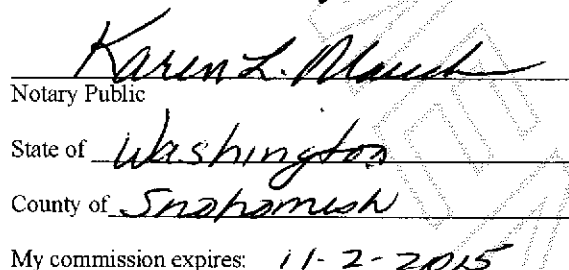 Karen L.
Notary Public
State of Washington
County of Snohomish
My commission expires: 11-2-2015